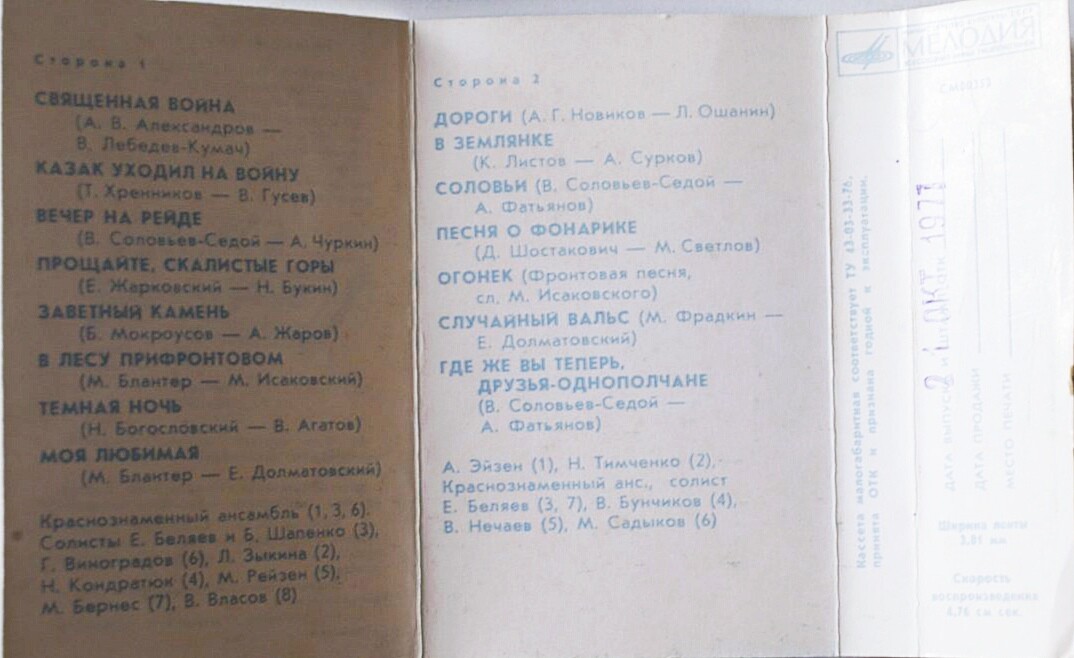 Сторона 1
СВЯЩЕННАЯ ВОЙНА
(А. В. Александров —
В. Лебедев-Кумач)
КАЗАК УХОДИЛ НА ВОЙНУ
(Т. Хренников — В. Гусев)
ВЕЧЕР НА РЕЙДЕ
(В. Соловьев-Седой — А. Чуркин)
ПРОЩАЙТЕ, СКАЛИСТЫЕ ГОРЫ
(Е. Жарковский — Н. Букин)
ЗАВЕТНЫЙ КАМЕНЬ
(Б. Мокроусов — А. Жаров)
В ЛЕСУ ПРИФРОНТОВОМ
(М. Блантер — М. Исаковский)
ТЕМНАЯ НОЧЬ
(Н. Богословский — В. Агатов)
МОЯ ЛЮБИМАЯ
(М. Блантер — Е. Долматовский)
Краснознаменный ансамбль (1, 3, 6).
Солисты Е. Беляев и Б. Шапенко (3),
Г. Виноградов (6), Л. Зыкина (2),
Н. Кондратюк (4), М. Рейзен (5),
М. Бернес (7), В. Власов (8)
Сторона 2
ДОРОГИ (А. Г. Новиков — Л. Ошанин)
В ЗЕМЛЯНКЕ
(К. Листов — А. Сурков)
СОЛОВЬИ (В. Соловьев-Седой —
А. Фатьянов)
ПЕСНЯ О ФОНАРИКЕ
(Д. Шостакович — М. Светлов)
ОГОНЕК (Фронтовая песня,
сл. М. Исаковского)
СЛУЧАЙНЫЙ ВАЛЬС (М. Фрадкин —
Е. Долматовский)
ГДЕ ЖЕ ВЫ ТЕПЕРЬ,
ДРУЗЬЯ-ОДНОПОЛЧАНЕ
(В. Соловьев-Седой —
А. Фатьянов)
А. Эйзен (1), Н. Тимченко (2),
Краснознаменный анс., солист
Е. Беляев (3, 7), В. Бунчиков (4),
В. Нечаев (5), М. Садыков (6)
МЕЛОДИЯ
Кассета малогабаритная соответствует ТУ 43-03-33-76,
принята ОТК и признана годной к эксплуатации.
ДАТА ВЫПУСКА
2 1 ОКТ 1977
ДАТА ПРОДАЖИ
МЕСТО ПЕЧАТИ
Ширина ленты
3,81 мм
Скорость
воспроизведения
4,76 см сек